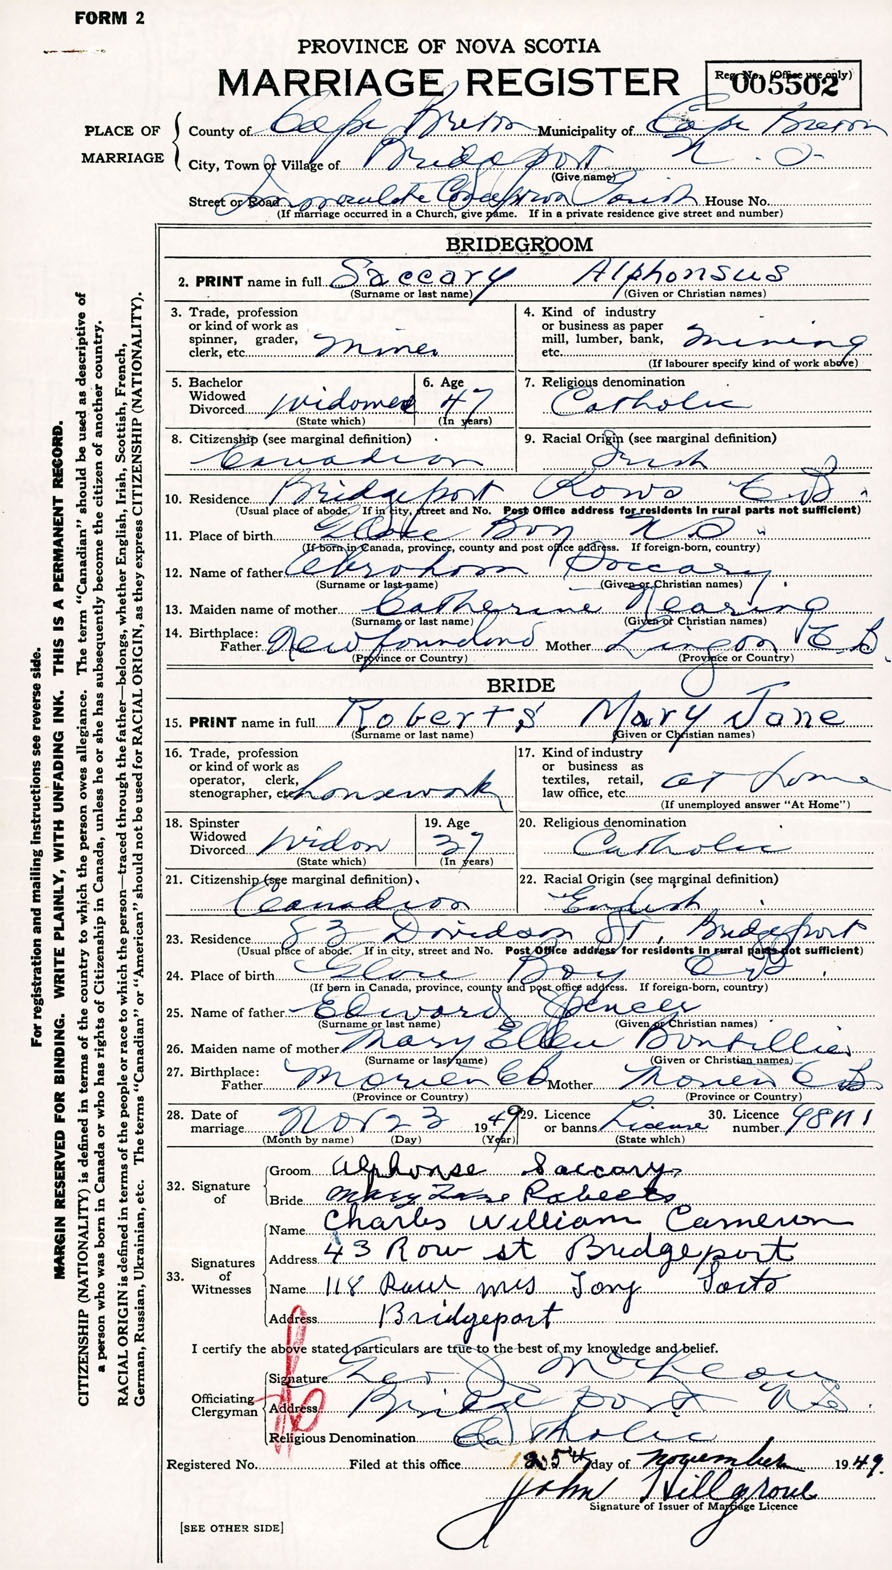 FORM 2
PROVINCE OF NOVA SCOTIA
MARRIAGE REGISTER
Reg. No. (Office use only)
005502
PLACE OF MARRIAGE
County of Cape Breton Municipality of Cape Breton
City, Town or Village of Bridgeport N. S.
(Give name)
Street or Road Immaculate Conception Parish House No.
(If marriage occurred in a Church, give name. If in a private residence give street and number)
BRIDEGROOM
2. PRINT name in full Saccary Alphonsus
(Surname or last name) (Given or Christian names)
3. Trade, profession or kind of work as spinner, grader, clerk, etc. Miner
4. Kind of industry or business as paper mill, lumber, bank, etc. Mining
(If labourer specify kind of work above)
5. Bachelor Widowed Divorced Widowed
(State which)
6. Age 47
(In years)
7. Religious denomination Catholic
8. Citizenship (see marginal definition) Canadian
9. Racial Origin (see marginal definition) Irish
10. Residence Bridgeport Rows C B
(Usual place of abode. If in city, street and No. Post Office address for residents in rural parts not sufficient)
11. Place of birth Glace Bay N S
(If born in Canada, province, county and post office address. If foreign-born, country)
12. Name of father Abraham Saccary
(Surname or last name) (Given or Christian names)
13. Maiden name of mother Catherine Nearing
(Surname or last name) (Given or Christian names)
14. Birthplace: Father Newfoundland Mother Lingan C B.
(Province or Country) (Province or Country)
BRIDE
15. PRINT name in full Roberts Mary Jane
(Surname or last name) (Given or Christian names)
16. Trade, profession or kind of work as operator, clerk, stenographer, etc. housework
17. Kind of industry or business as textiles, retail, law office, etc. at home
(If unemployed answer "At Home")
18. Spinster Widowed Divorced Widow
(State which)
19. Age 37
(In years)
20. Religious denomination Catholic
21. Citizenship (see marginal definition) Canadian
22. Racial Origin (see marginal definition) English
23. Residence 83 Davidson St, Bridgeport
(Usual place of abode. If in city, street and No. Post Office address for residents in rural parts not sufficient)
24. Place of birth Glace Bay C B
(If born in Canada, province, county and post office address. If foreign-born, country)
25. Name of father Edward Spencer
(Surname or last name) (Given or Christian names)
26. Maiden name of mother Mary Ellen Boutillier
(Surname or last name) (Given or Christian names)
27. Birthplace: Father Morien CB Mother Morien C B
(Province or Country) (Province or Country)
28. Date of marriage Nov 23 1949
(Month by name) (Day) (Year)
29. Licence or banns License
(State which)
30. Licence number 98111
32. Signature of
Groom Alphonse Saccary
Bride Mary Jane Roberts
33. Signatures of Witnesses
Name Charles William Cameron
Address 43 Row st Bridgeport
Name 118 Row Mrs Tony
Address Bridgeport
I certify the above stated particulars are true to the best of my knowledge and belief.
Officiating Clergyman
Signature
Address Bridgeport N S.
Religious Denomination Catholic
Registered No. Filed at this office 25th day of November 1949.
John Hillgrove
Signature of Issuer of Marriage Licence
[SEE OTHER SIDE]
For registration and mailing instructions see reverse side.
MARGIN RESERVED FOR BINDING. WRITE PLAINLY, WITH UNFADING INK. THIS IS A PERMANENT RECORD.
CITIZENSHIP (NATIONALITY) is defined in terms of the country to which the person owes allegiance. The term "Canadian" should be used as descriptive of
a person who was born in Canada or who has rights of Citizenship in Canada, unless he or she has subsequently become the citizen of another country.
RACIAL ORIGIN is defined in terms of the people or race to which the person—traced through the father—belongs, whether English, Irish, Scottish, French,
German, Russian, Ukrainian, etc. The terms "Canadian" or "American" should not be used for RACIAL ORIGIN, as they express CITIZENSHIP (NATIONALITY).